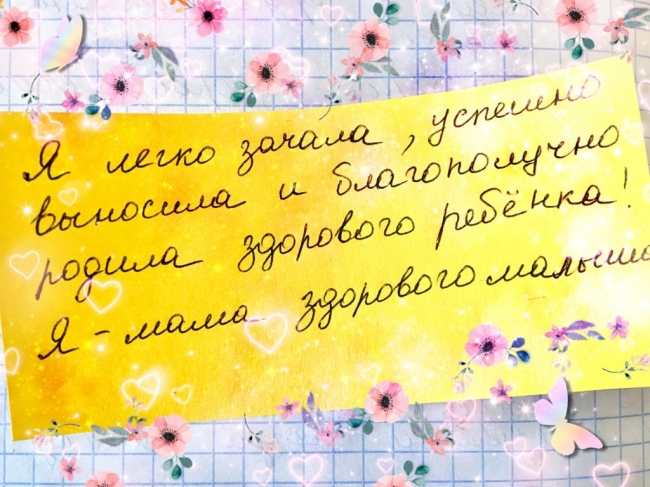 Я легко зачала, успешно
выносила и благополучно
родила здорового ребёнка!
Я - мама здорового малыша